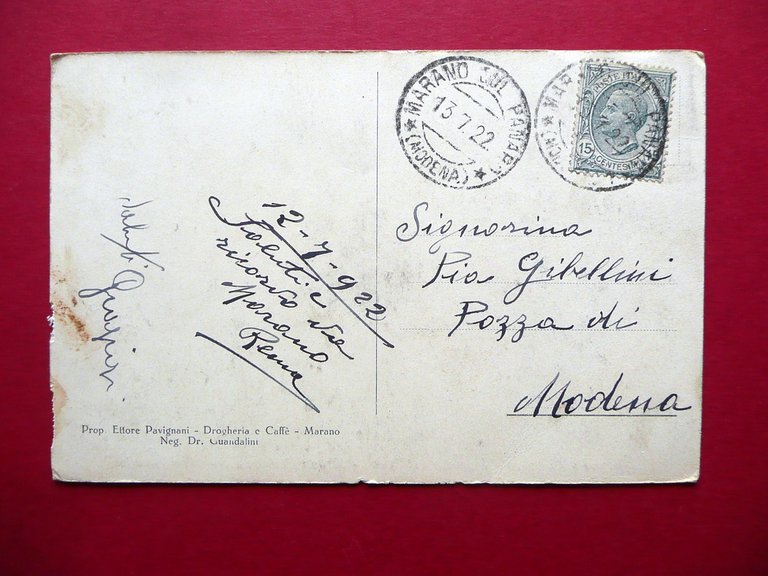 MARANO SUL PANARO
13.7.22
(MODENA)
POSTE ITALIANE
15
CENTESIMI
Signorina
Pia Gibellini
Pozza di
Modena
12-7-922
Saluti e
ricordo da
Marano
Rema
Saluti
Prop. Ettore Pavignani - Drogheria e Caffè - Marano
Neg. Dr. Guandalini